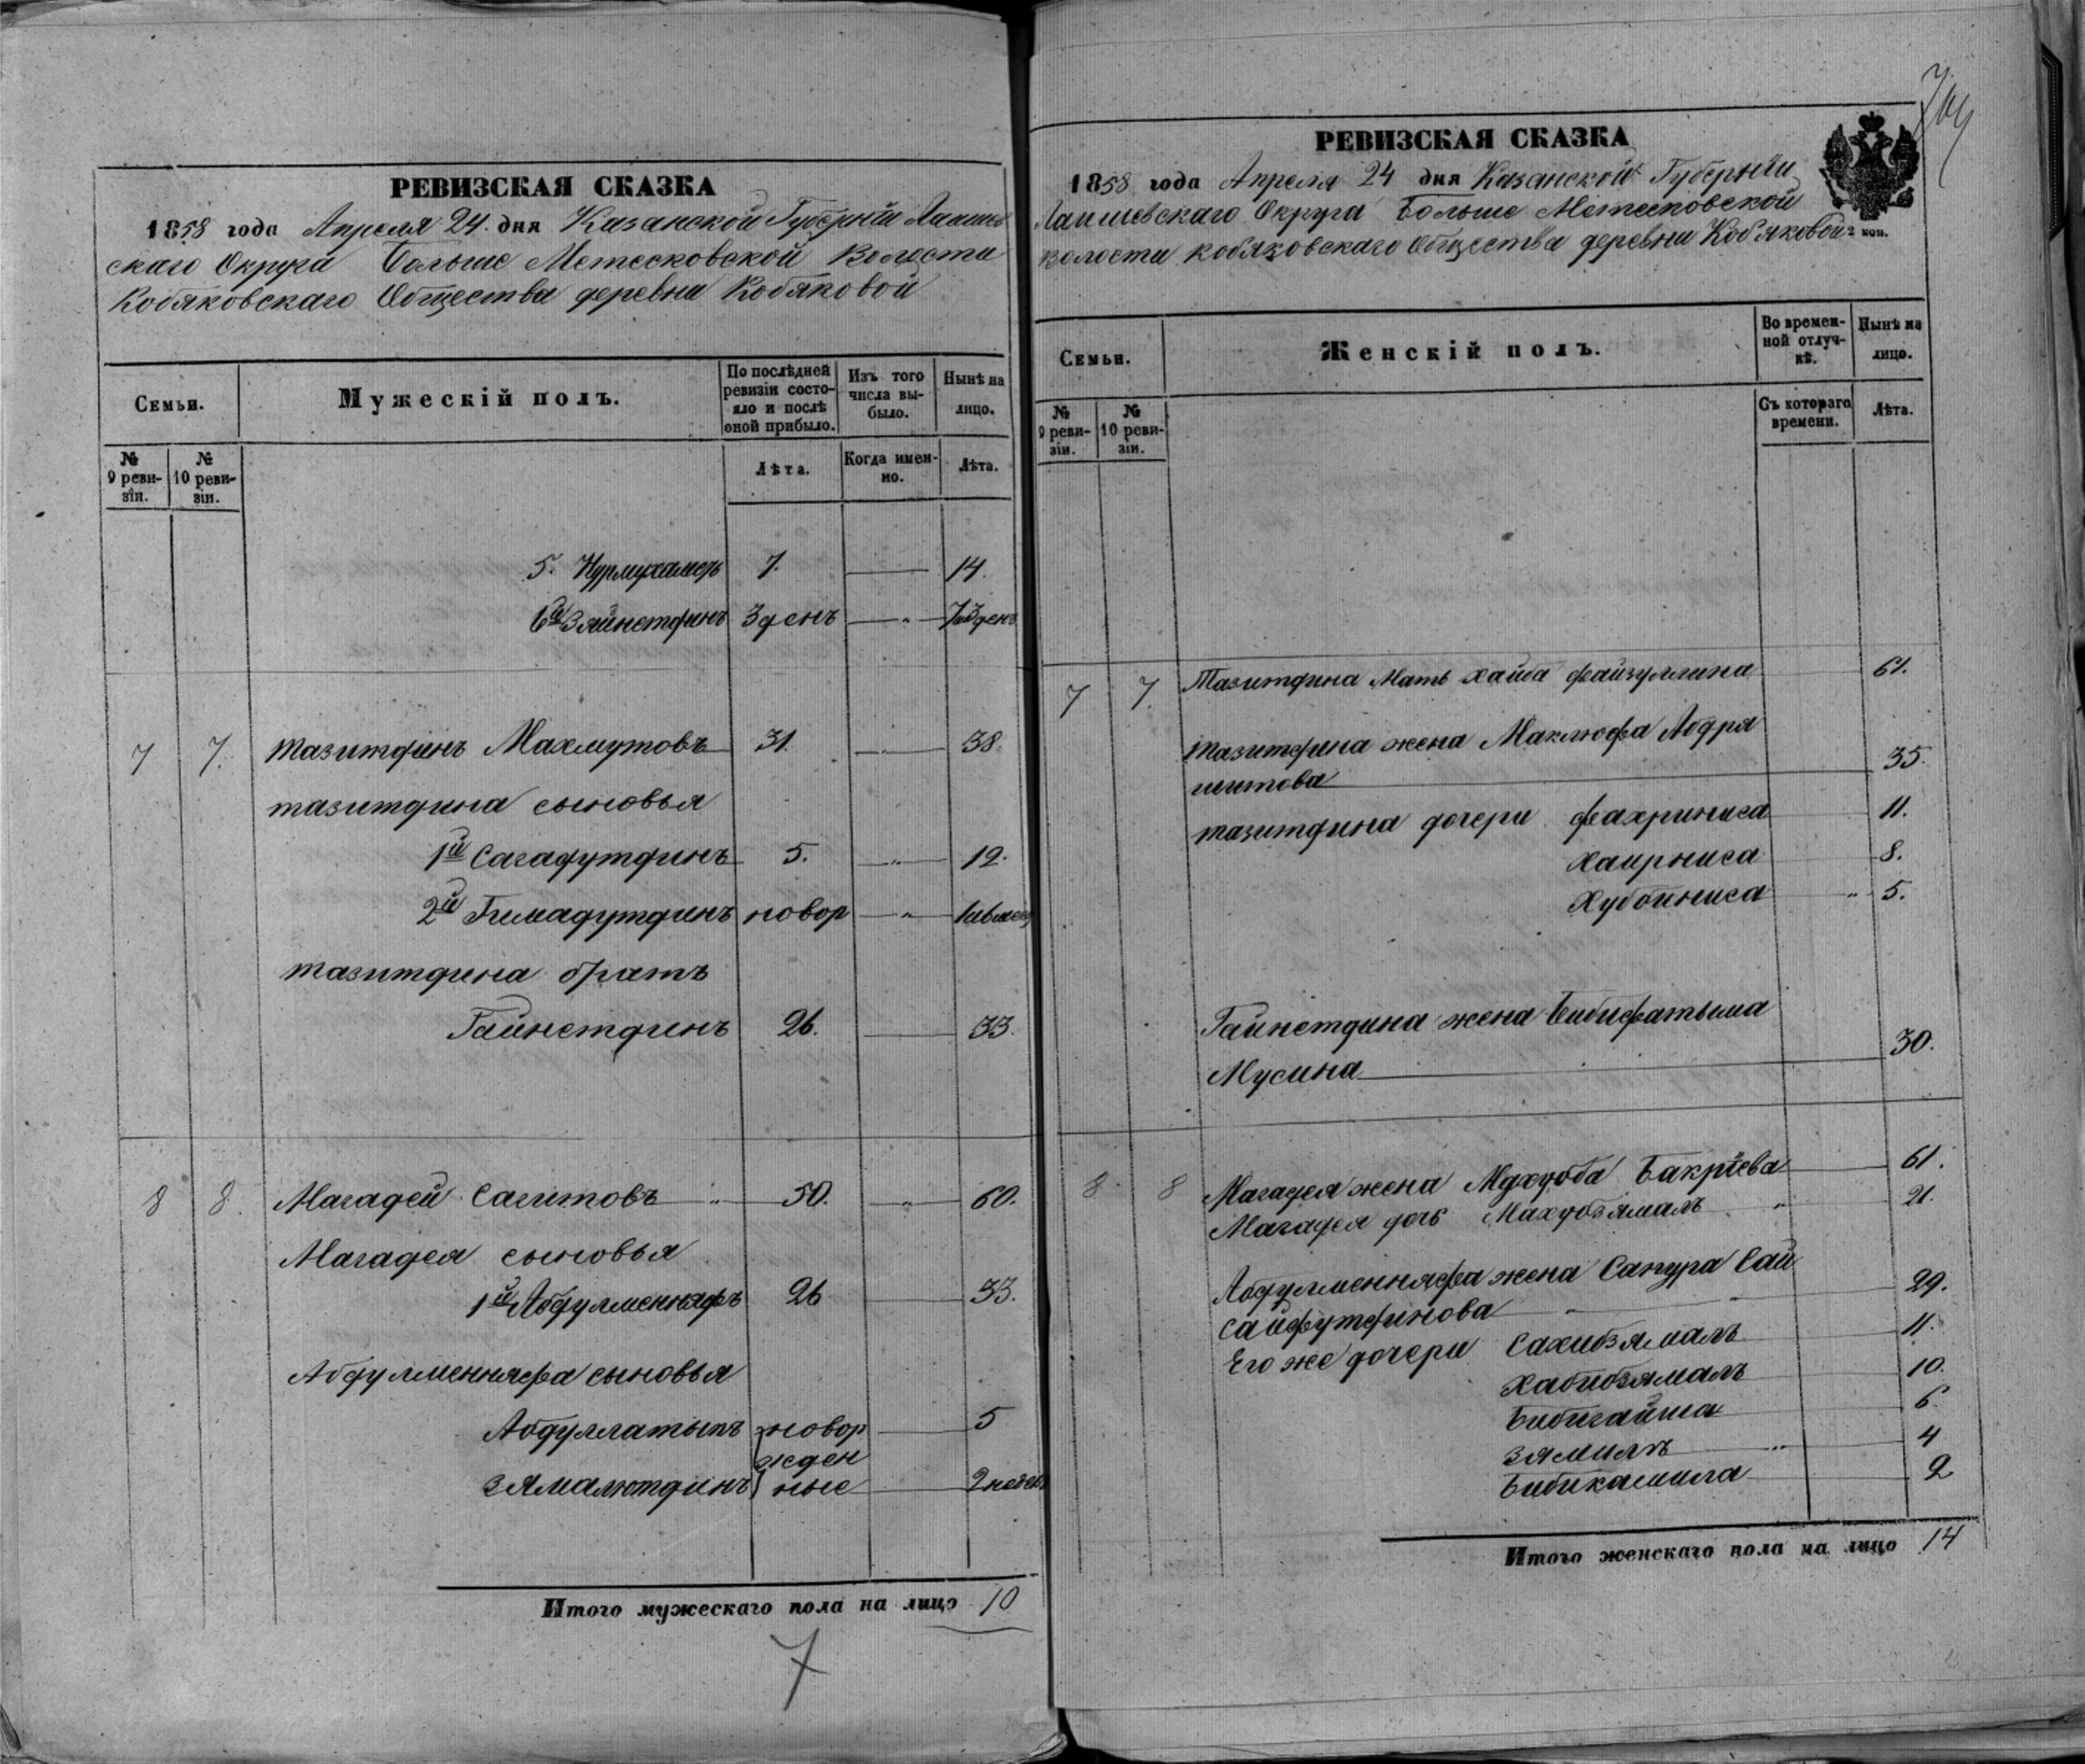 РЕВИЗСКАЯ СКАЗКА
1858 года Апреля 24. дня Казанской Губерніи Лаише
скаго Округа Больше Метесковской Волости
Кобяковскаго Общества деревни Кобяковой
Семьи.
Мужескій полъ.
По послѣдней ревизіи состояло и послѣ оной прибыло.
Изъ того числа выбыло.
Нынѣ на лицо.
№ 9 ревизіи.
№ 10 ревизіи.
Лѣта.
Когда именно.
Лѣта.
5. Нурмухаметъ 7. 14.
6й Зяйнетдинъ 3 денъ
7 7. Тазитдинъ Махмутовъ 31. 38.
тазитдина сыновья
1й Сагадутдинъ 5. 12.
2й Гимадутдинъ новор
тазитдина братъ
Гайнетдинъ 26. 33.
8 8. Магадей Сагитовъ 50. 60.
Магадея сыновья
1й Абдулменнафъ 26 33.
Абдулменняфа сыновья
Абдуллатыпъ новор 5
жден
Зямалютдинъ ные 2 недели
Итого мужескаго пола на лицо 10
7
РЕВИЗСКАЯ СКАЗКА
1858 года Апреля 24 дня Казанской Губерніи
Лаишевскаго Округа Больше Метесковской
волости кобяковскаго Общества деревни Кобяковой
2 коп.
Семьи.
Женскій полъ.
Во временной отлучкѣ.
Нынѣ на лицо.
№ 9 ревизіи.
№ 10 ревизіи.
Съ котораго времени.
Лѣта.
7 7. Тазитдина Мать хайба файзуллина 61.
тазитдина жена Маклюфа Абдря
шитова 35.
тазитдина дочери фахриниса 11.
Хаирниса 8.
Хубониса 5.
Гайнетдина жена бибифатыма
Мусина 30.
8 8 Магадея жена Махуба Бакріева 61.
Магадея дочь Махубзямалъ 21.
Абдулменняфа жена Санура Сай
сайфутдинова 29.
Его же дочери Сахибзямалъ 11.
Хабибзямалъ 10.
Бибигайша 6
Зямилъ 4
Бибикамила 2
Итого женскаго пола на лицо 14